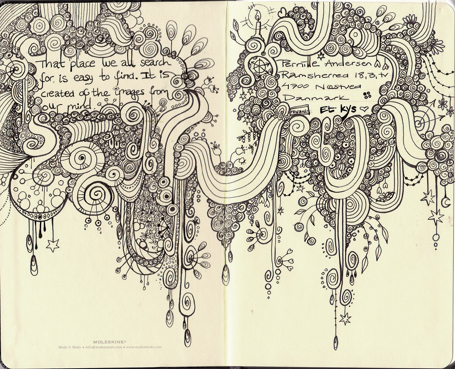 That place we all search
for is easy to find. It is
created of the images from
our mind.
Pernille Andersen
Ramsherred 18, 3, tv
4700 Næstved
Danmark
Et kys
MOLESKINE®